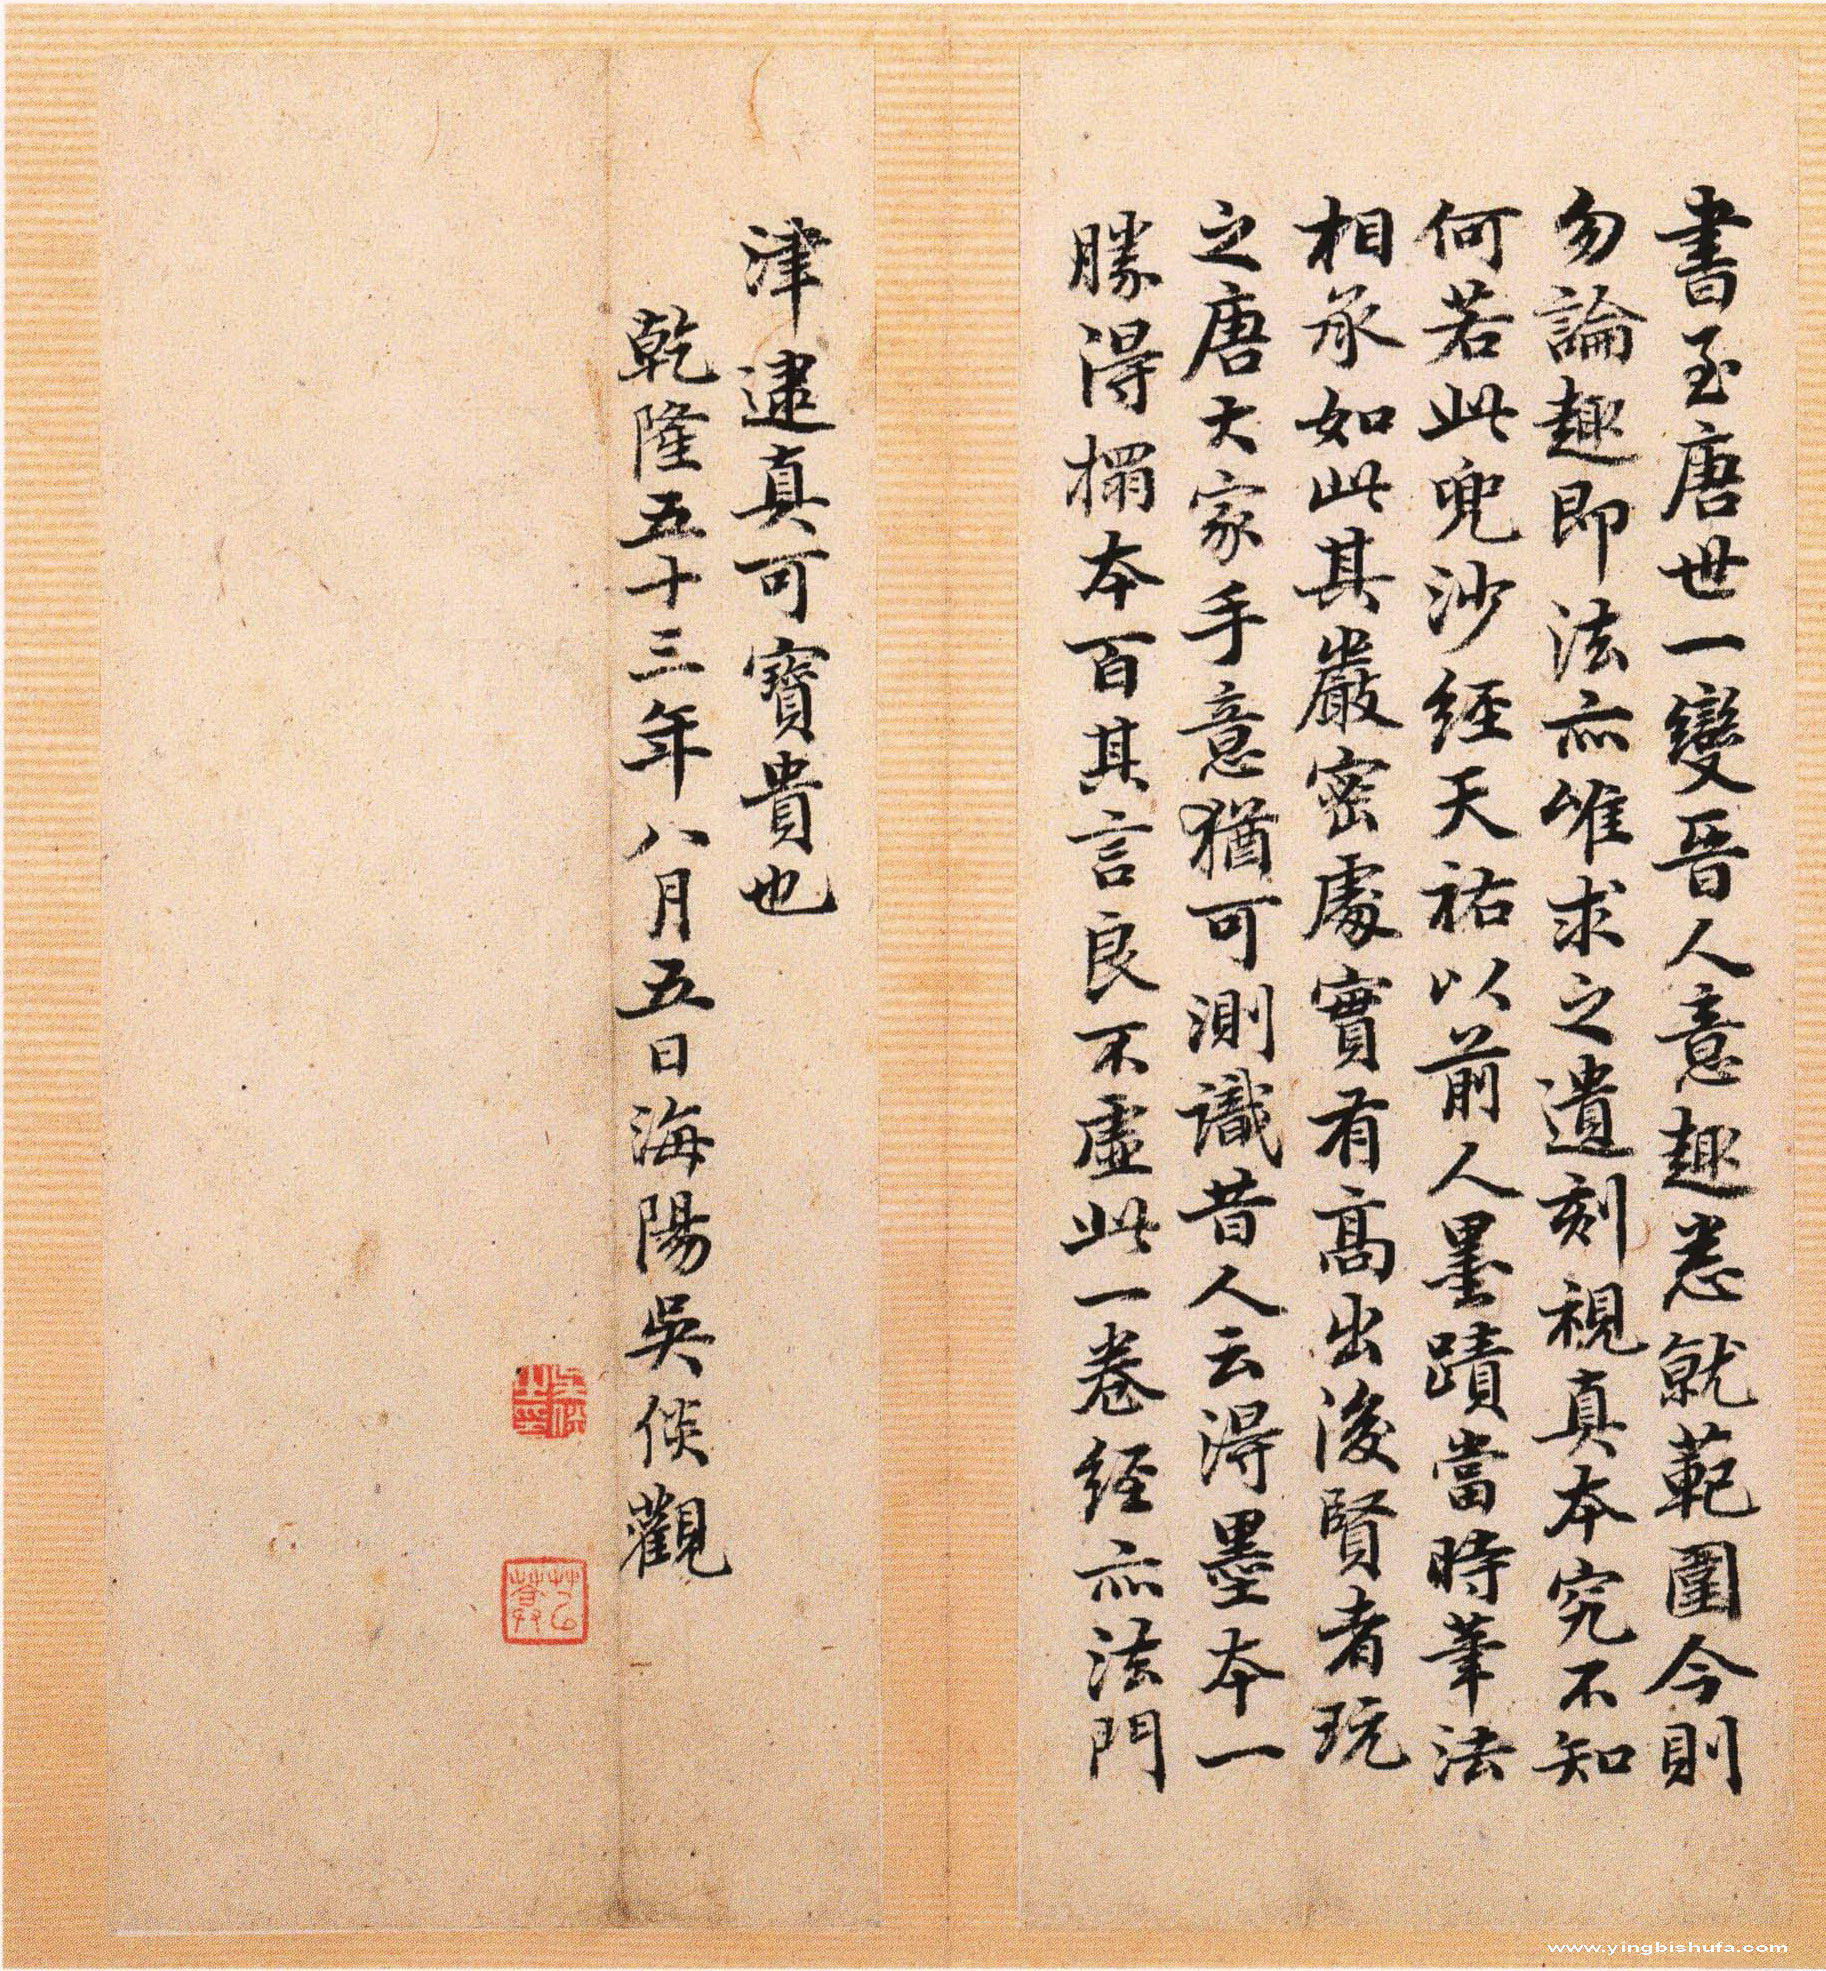 書至唐世一變晉人意趣悉就範圍今則
勿論趣即法亦唯求之遺刻視真本究不知
何若此兜沙經天祐以前人墨蹟當時筆法
相承如此其嚴密處實有高出後賢者玩
之唐大家手意猶可測識昔人云得墨本一
勝得搨本百其言良不虛此一卷經亦法門
津逮真可寶貴也
乾隆五十三年八月五日海陽吳倓觀
www.yingbishufa.com